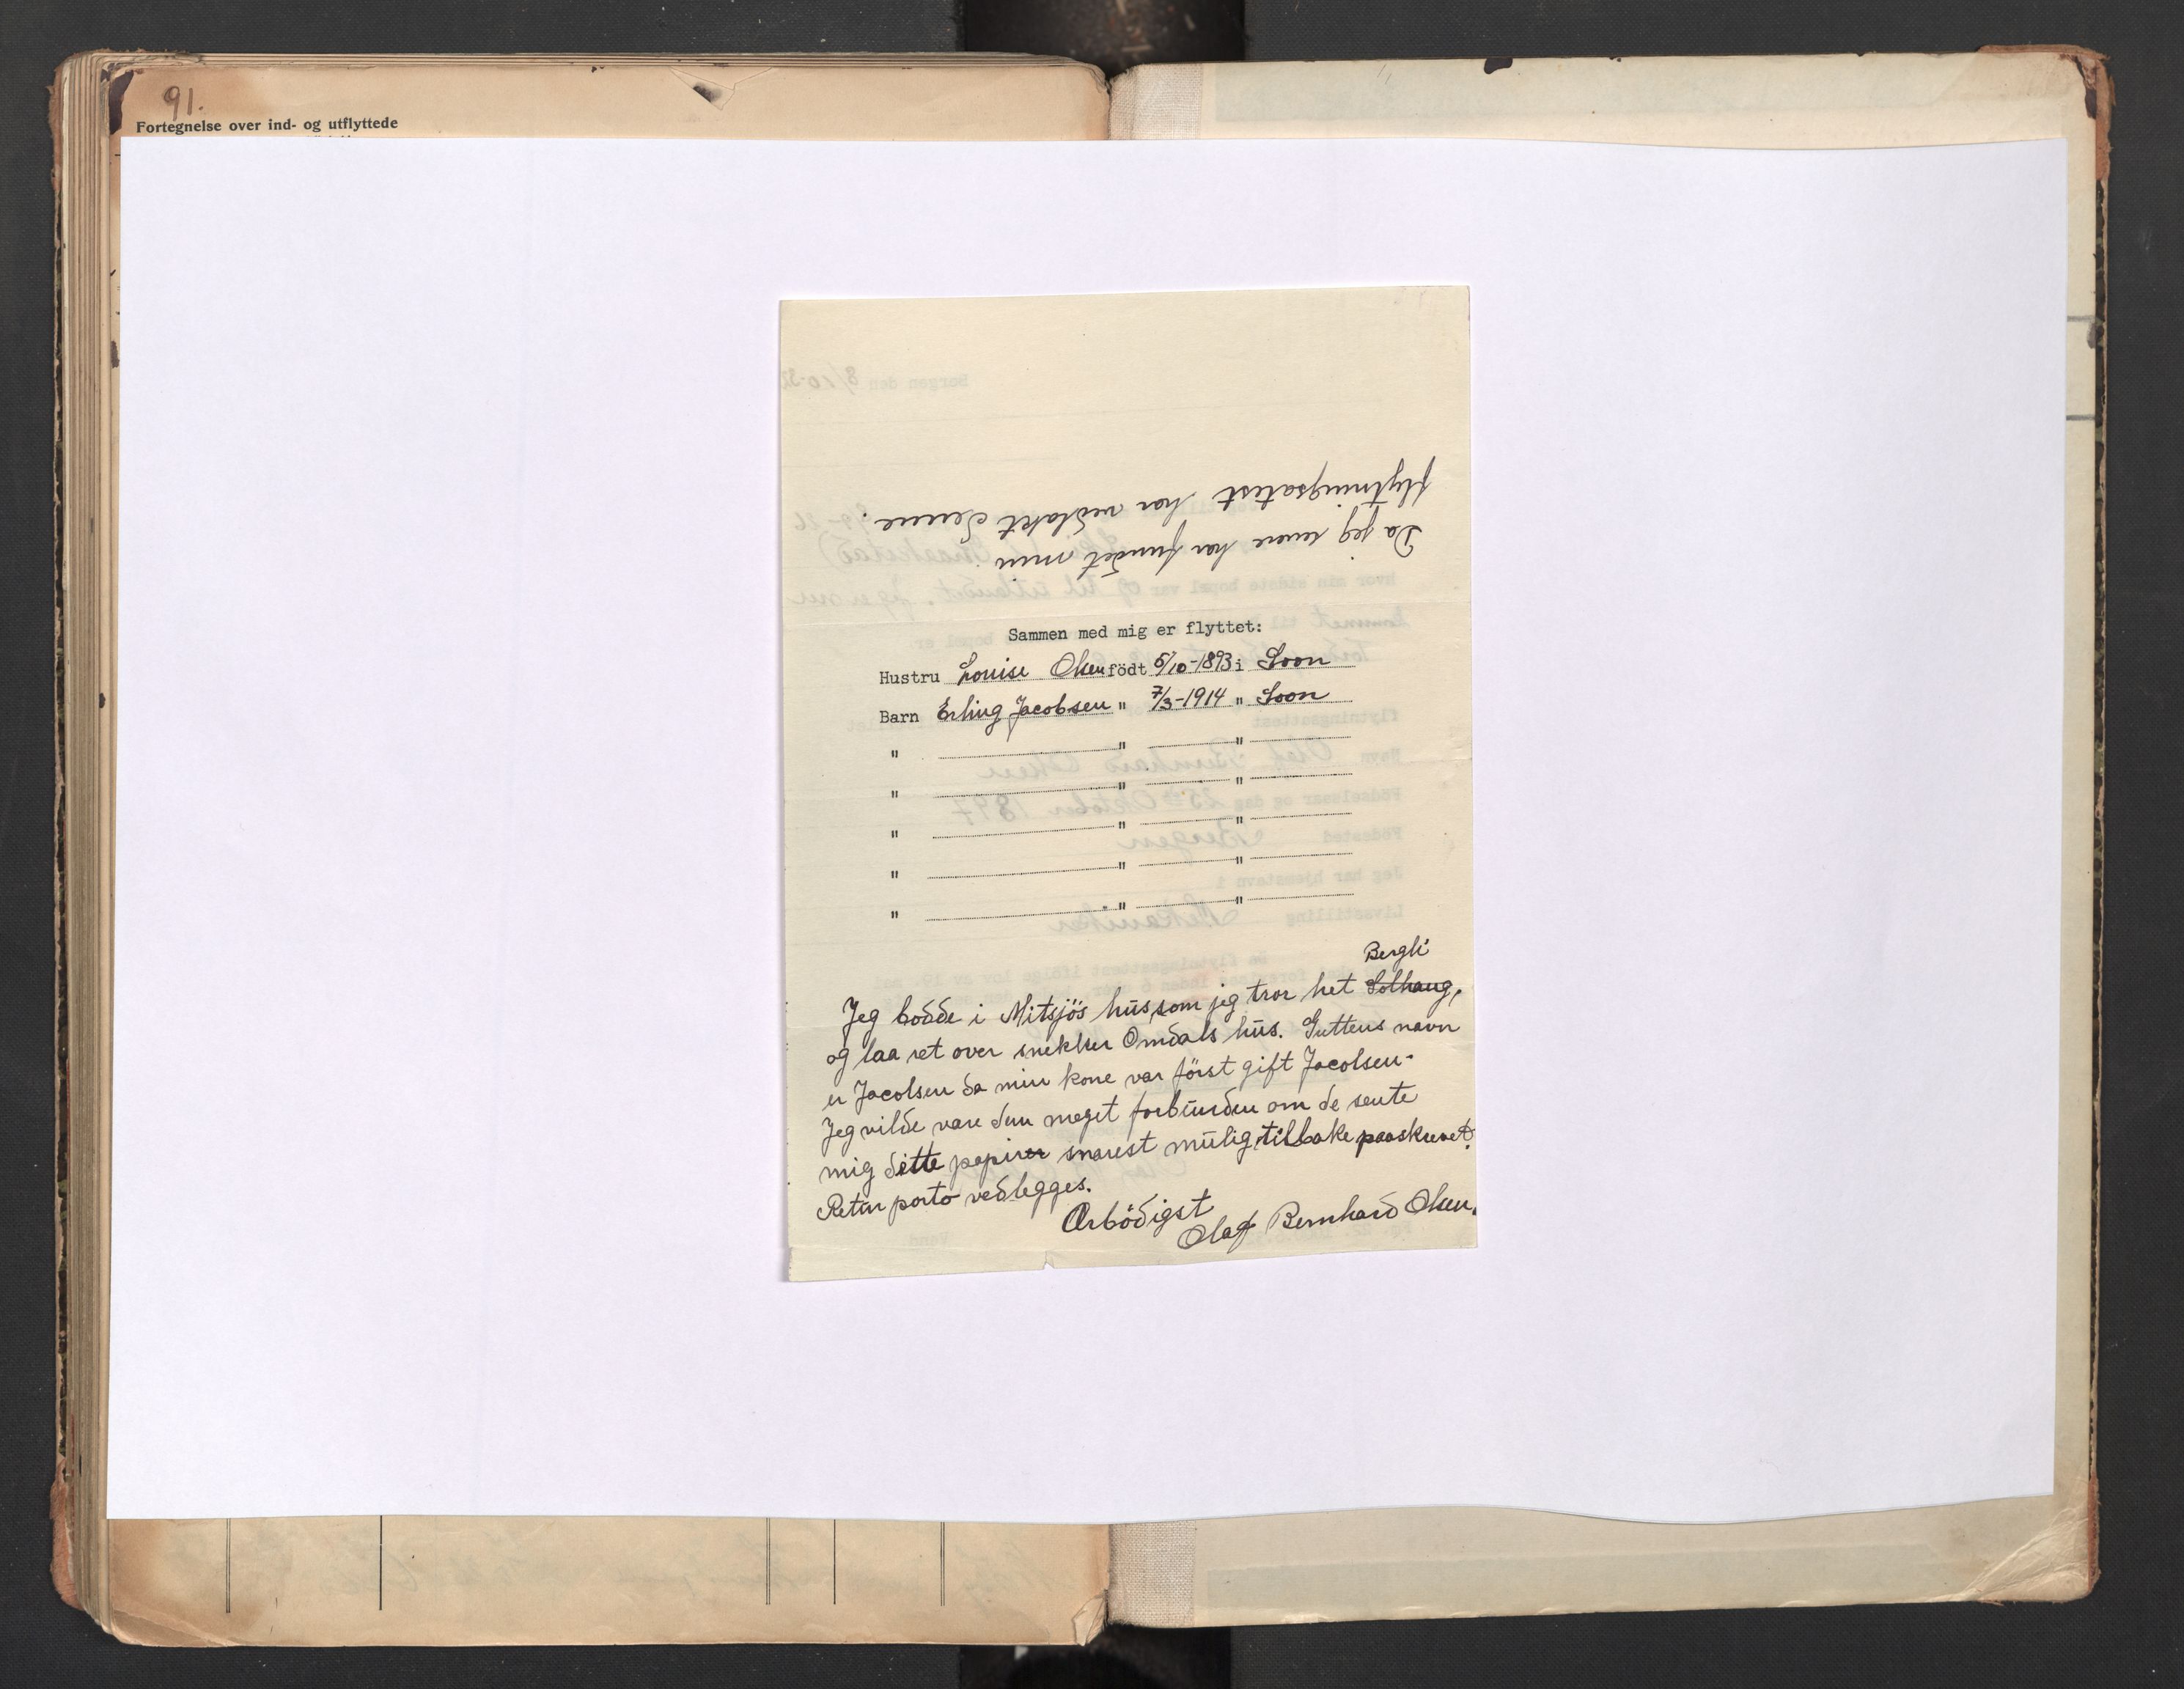 91.
Fortegnelse over ind- og utflyttede
Da jeg senere har fundet min
flytningsatest har vedlakt denne.
Sammen med mig er flyttet:
Hustru Louise Olsen födt 5/10-1893 i Soon
Barn Erling Jacobsen " 7/3-1914 " Soon
" " "
" " "
" " "
" " "
" " "
Bergli
Jeg bodde i Mitsjös hus, som jeg tror het Solhaug,
og laa ret over snekker Omdals hus. Guttens navn
er Jacolsen da min kone var först gift Jacolsen-
Jeg vilde være dem meget forbunden om de sente
mig dette papirer snarest mulig tilbake paaskrevet.
Retur porto vedlegges.
Ærbödigst
Olaf Bernhard Olsen.